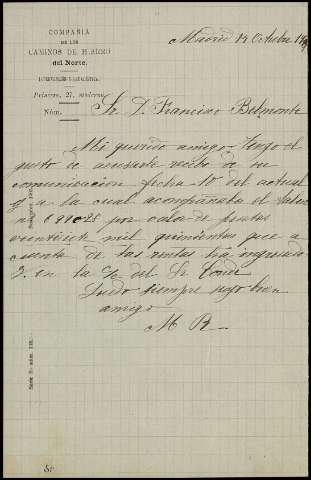 COMPAÑIA
DE LOS
CAMINOS DE HIERRO
del Norte.
Madrid 14 Octubre
INTERVENCIÓN Y ESTADÍSTICA
Príncipe, 27, moderno
Núm.
Sr. D. Francisco Belmonte
Mi querido amigo: Tengo el
gusto de acusarle recibo de su
comunicacion fecha 10 del actual
y a la cual acompañaba el talon
nº por de pesetas
veintisiete mil quinientas que a
cuenta de las rentas ha ingresado
V. en la C/c del Sr. Conde
Quedo siempre suyo buen
amigo
M R
Serie